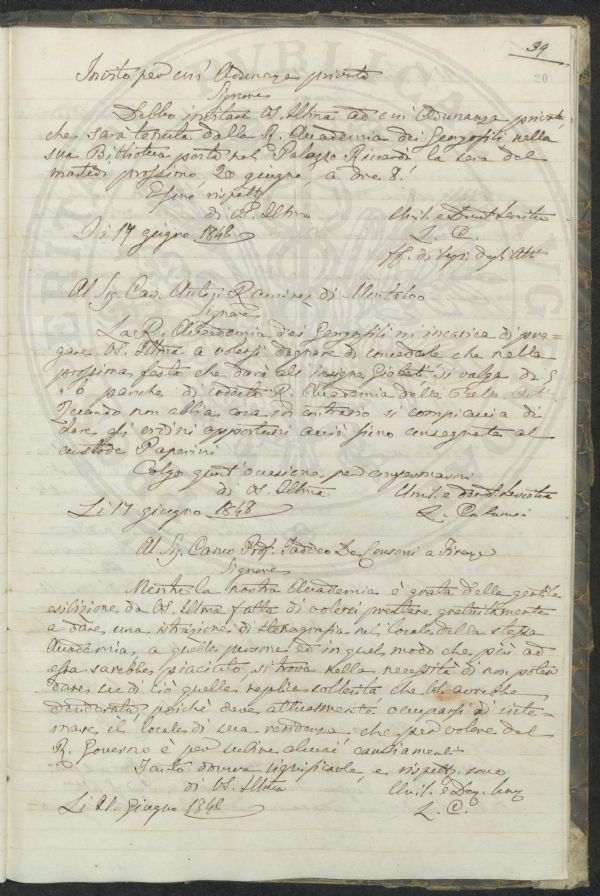 39
20
Invito per un' Adunanza privata
Signore
Debbo invitare VS. Illma ad un' Adunanza privata,
che sarà tenuta dalla R. Accademia dei Georgofili nella
sua Biblioteca posta nel Palazzo Riccardi la sera del
martedì prossimo 20 giugno a ore 8.
E sono rispett.
di VS. Illma
Umil. e Devot. Servitore
Li 17 giugno 1848
L. C.
ff. di Segr. degli Atti
Al Sig. Cav. Ramirez di Montalvo
Signore
La R. Accademia dei Georgofili mi incarica di pre=
gare VS. Illma a volersi degnare di concederle che nella
prossima festa che darà all' insigne Gioberti si valga di
panche di codesta R. Accademia delle Belle Arti
Quando non abbia cosa in contrario si compiaccia di
dare gli ordini opportuni acciò sieno consegnate al
custode Paperini
Colgo quest' occasione per confermarmi
di VS. Illma
Umil. e devot. Servitore
Li 17 giugno 1848
L. Calamai
Al Sig. Canco Prof. Taddeo De Consoni a Firenze
Signore
Mentre la nostra Accademia è grata della gentile
esibizione da VS. Illma fatta di volerci prestare gratuitamente
e dare una istruzione di stenografia nel locale della stessa
Accademia, a quelle persone ed in quel modo che più ad
essa sarebbe piaciuto, si trova nella necessità di non potere
dare su di ciò quella replica sollecita che VS. avrebbe
desiderata, poiché deve attivamente occuparsi di siste=
mare il locale di sua residenza che per volere del
R. Governo è per subire alcuni cambiamenti.
Tanto doveva significarle, e rispett. sono
di VS. Illma
Li 21. giugno 1848
L. C.